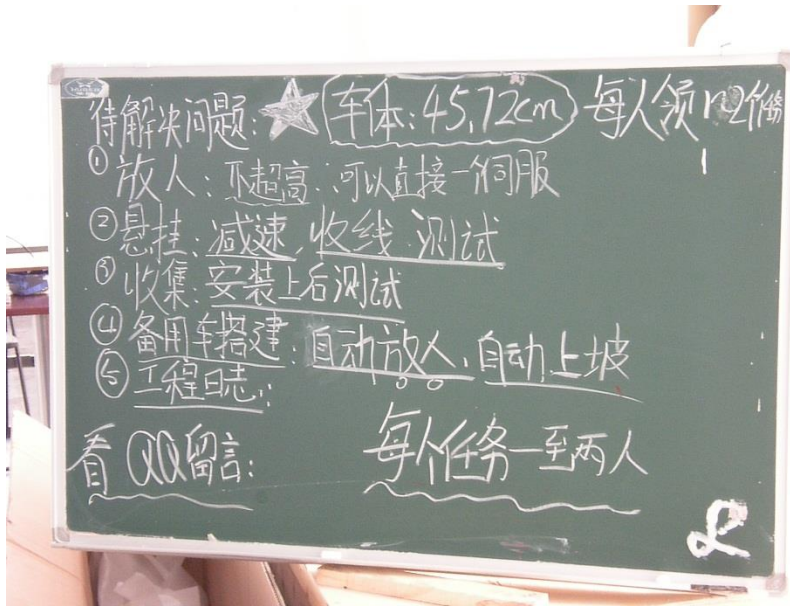 待解决问题: ☆ 车体:45.72cm 每人领1~2个任务
① 放人:不超高.可以直接一个伺服
② 悬挂:减速、收线.测试
③ 收集:安装上后测试
④ 备用车搭建:自动放人、自动上坡
⑤ 工程日志:
看QQ留言: 每个任务一至两人